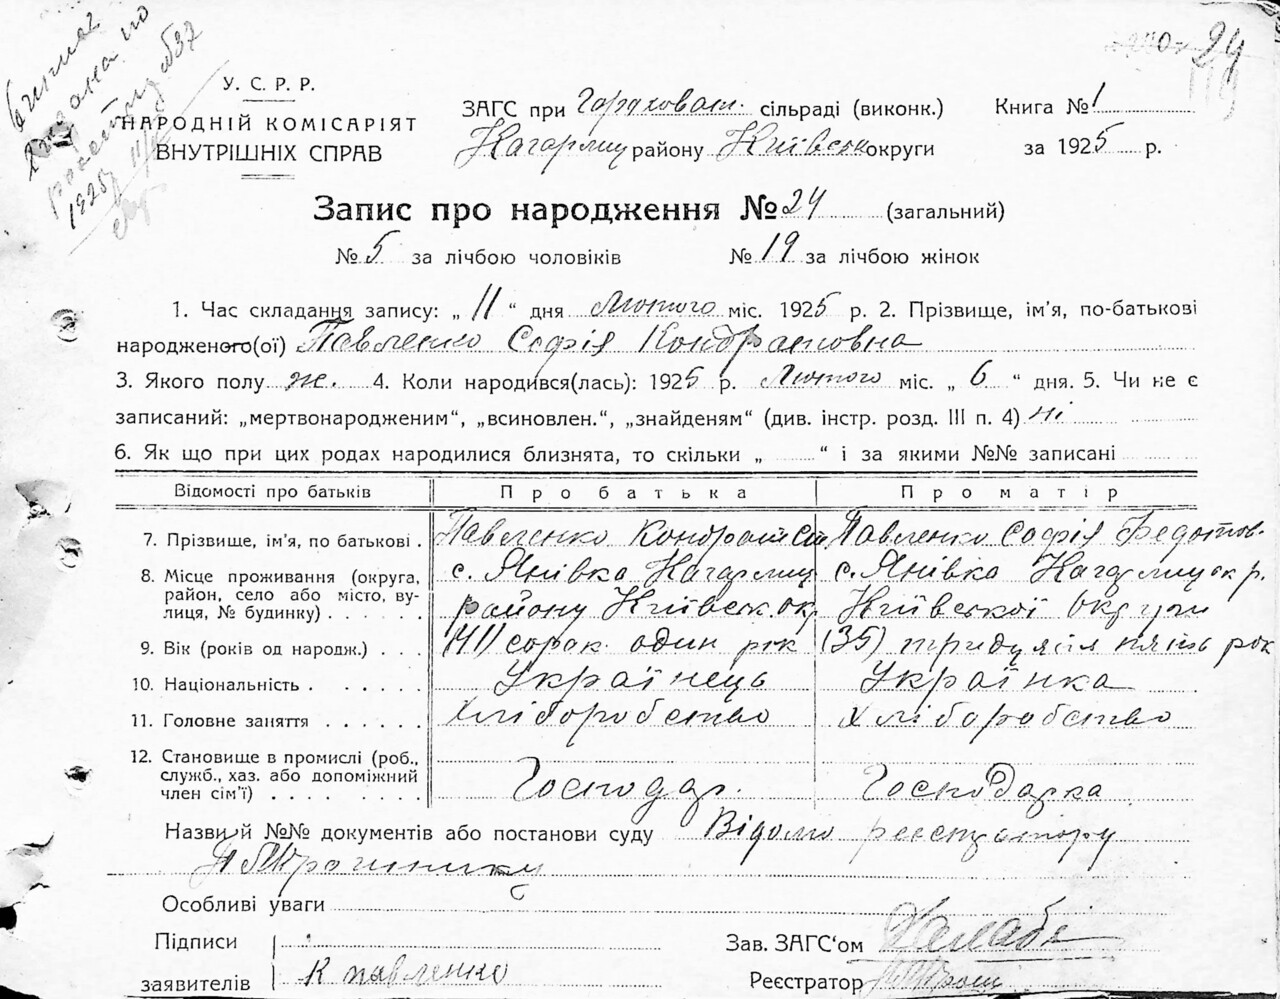 29
У. С. Р. Р.
НАРОДНІЙ КОМІСАРІЯТ
ВНУТРІШНІХ СПРАВ
ЗАГС при Гороховат. сільраді (виконк.)
Кагарлиц району Київськ округи
Книга № 1
за 1925 р.
Запис про народження № 24 (загальний)
№ 5 за лічбою чоловіків № 19 за лічбою жінок
1. Час складання запису: „ 11 “ дня Лютого міс. 1925 р. 2. Прізвище, ім'я, по-батькові
народженого(ої) Павленко Софія Кондратовна
3. Якого полу ж. 4. Коли народився(лась): 1925 р. Лютого міс. „ 6 “ дня. 5. Чи не є
записаний: „мертвонародженим“, „всиновлен.“, „знайденям“ (див. інстр. розд. III п. 4) ні
6. Як що при цих родах народилися близнята, то скільки „ “ і за якими №№ записані
Відомості про батьків Про батька Про матір
7. Прізвище, ім'я, по батькові . Павленко Кондрат Павленко Софія Федотов.
8. Місце проживання (округа, район, село або місто, вулиця, № будинку) . . . . . с. Янівка Кагарлиц району Київськ. окр. с. Янівка Кагарлицок р. Київської Округи
9. Вік (років од народж.) . . . (41) сорок один рік (35) тридцять пять рок
10. Національність . . . . . . Українець Українка
11. Головне заняття . . . . . . Хліборобство Хліборобство
12. Становище в промислі (роб., служб., хаз. або допоміжний член сім'ї) . . . . . . . Господар. Господарка
Назви й №№ документів або постанови суду Відомо реєстратору
Особливі уваги
Підписи
заявителів К павленко
Зав. ЗАГС‘ом
Реєстратор